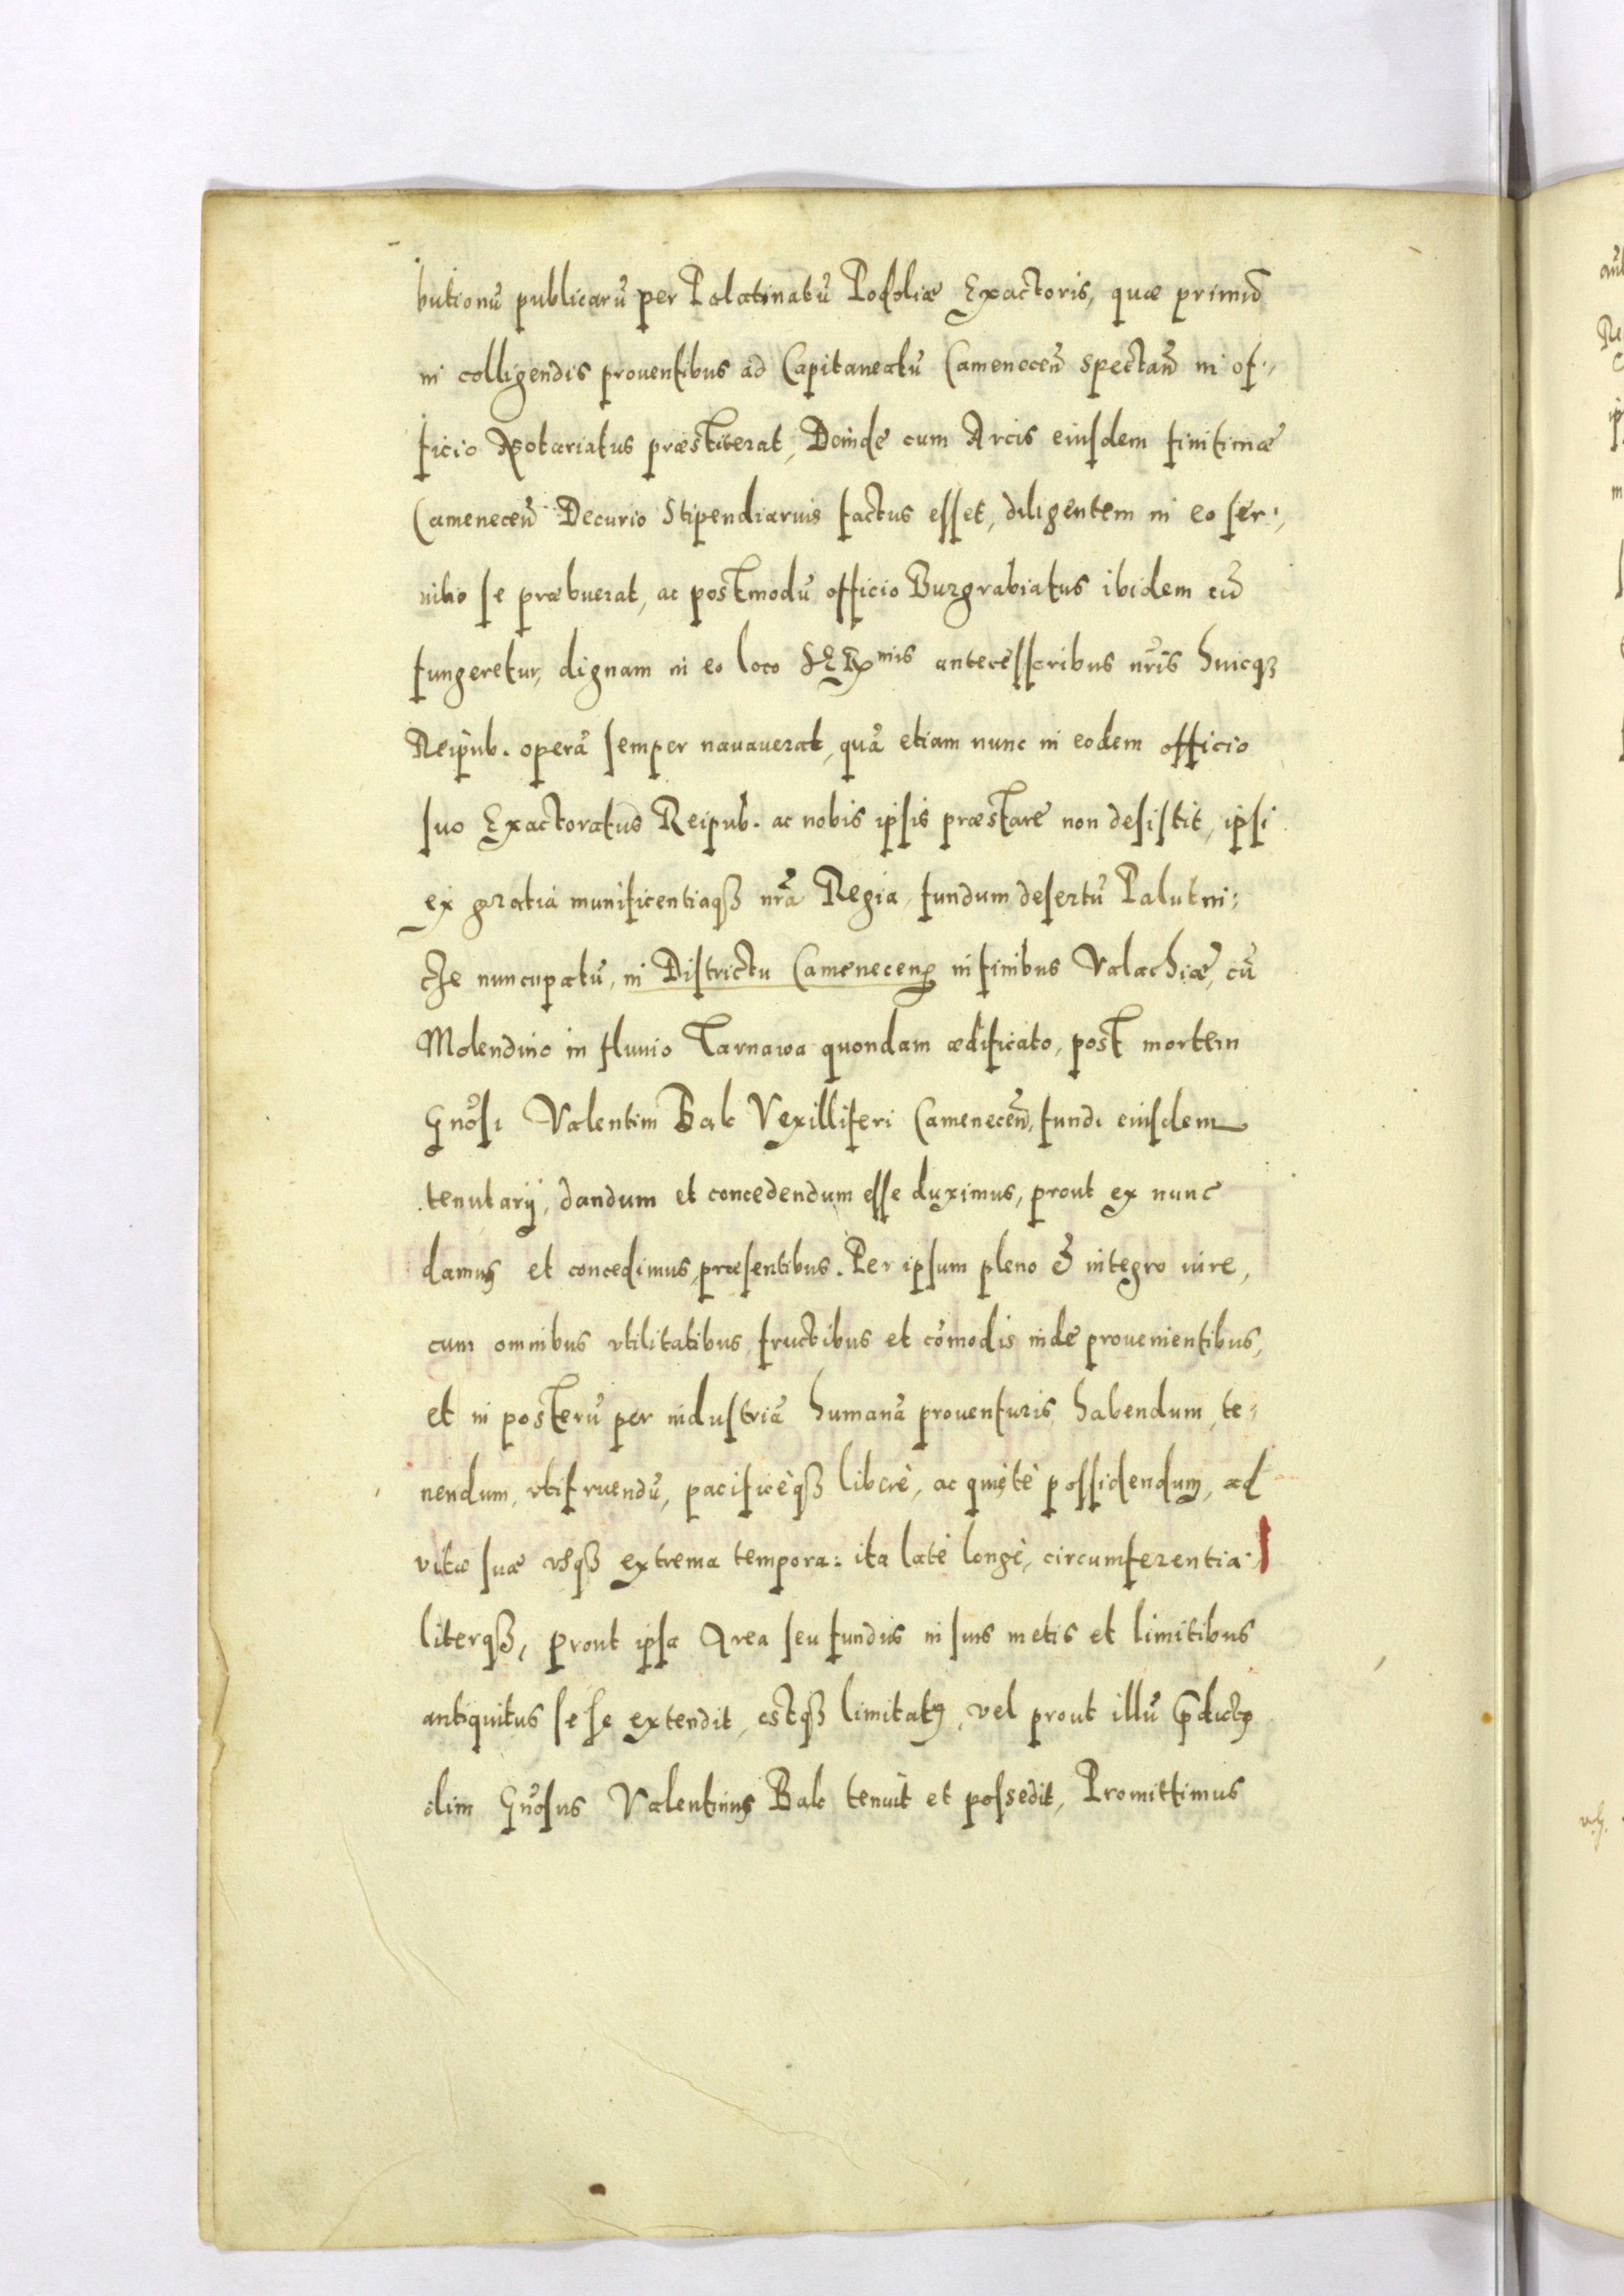 butionū publicarū per Palatinatū Podoliæ Exactoris, quæ primū
in colligendis prouentibus ad Capitaneatū Camenecen̄ spectan̄ in of:,
ficio Notariatus præstiterat, Deinde cum Arcis eiusdem finitimæ
Camenecen̄ Decurio Stipendiarius factus esset, diligentem in eo ser:,
uitio se præbuerat, ac postmodū officio Burgrabiatus ibidem cū
fungeretur, dignam in eo loco SERmis antecessoribus nr̄is huicqȝ
Reipub. operā semper nauauerat, quā etiam nunc in eodem officio
suo Exactoratus Reipub. ac nobis ipsis præstare non desistit, ipsi
ex gratia munificentiaqȝ nr̄a Regia, fundum desertū Palutni:
cze nuncupatū, in Districtu Camenecen̄ in finibus Valachiæ, cū
Molendino in fluuio Tarnawa quondam ædificato, post mortem
Gn̄osi Valentini Bab Vexilliferi Camenecen̄, fundi eiusdem
tenutarij, dandum et concedendum esse duximus, prout ex nunc
damus et concedimus præsentibus. Per ipsum pleno & integro iure,
cum omnibus vtilitatibus fructibus et cōmodis inde prouenientibus,
et in posterū per industriā humanā prouenturis, habendum, te:
nendum, vtifruendū, pacificèqȝ liberè, ac quietè possidendum, ad
vitæ suæ vsqȝ extrema tempora: ita latè longè, circumferentia:
literqȝ, prout ipsa Area seu fundus in suis metis et limitibus
antiquitus sese extendit, estqȝ limitatꝰ, vel prout illū p̄dictꝰ
olim Gn̄osus Valentinus Bab tenuit et possedit, Promittimus